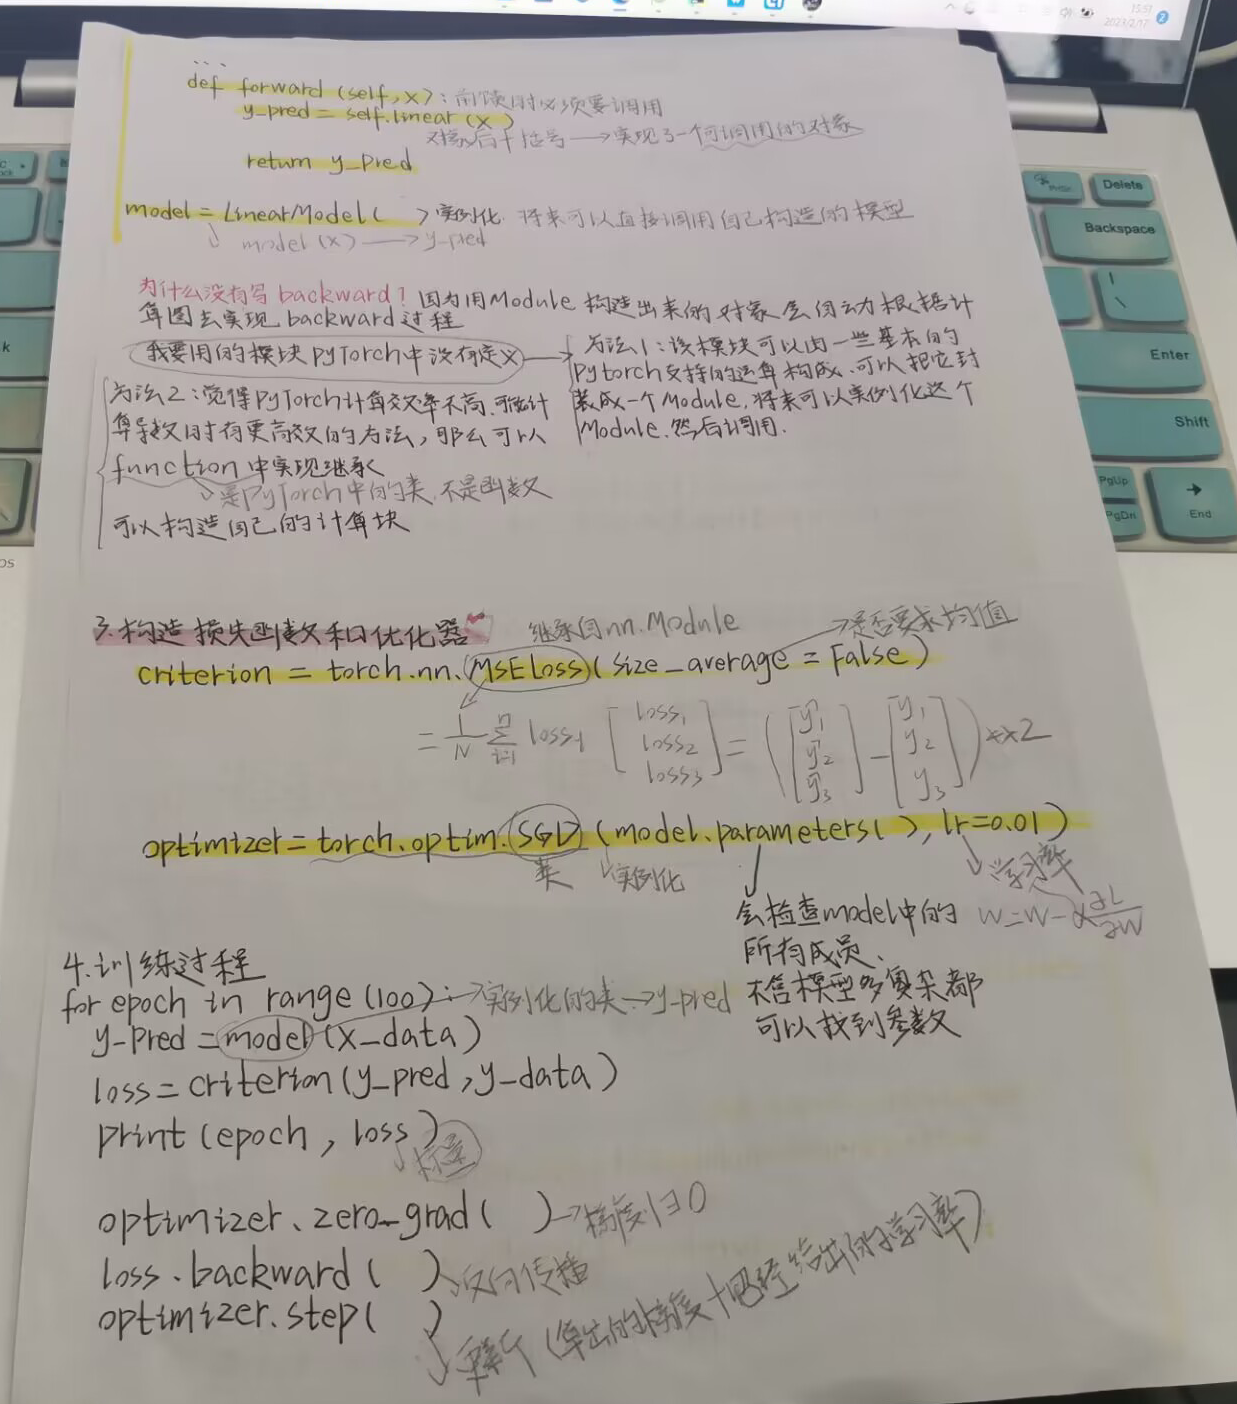 15:57
2023/2/17
...
def forward (self, x): 前馈时必须要调用
y_pred = self.linear (x)
对象后+括号→实现了一个可调用的对象
return y_pred
model = LinearModel( ) 实例化 将来可以直接调用自己构造的模型
model (x) → y_pred
为什么没有写 backward? 因为用Module 构造出来的对象会自动根据计
算图去实现 backward过程
我要用的模块PyTorch中没有定义 → 方法1: 该模块可以由一些基本的
Pytorch支持的运算构成、可以把它封
装成一个Module, 将来可以实例化这个
Module, 然后调用.
方法2: 觉得PyTorch计算效率不高,
算导数时有更高效的方法, 那么可以
function 中实现继承
是PyTorch中的类, 不是函数
可以构造自己的计算块
3. 构造损失函数和优化器 继承自nn.Module →是否要求均值
criterion = torch.nn.(MSELoss)(size_average = False)
= 1/N n∑i=1 lossi [loss1 loss2 loss3] = ([ŷ1 ŷ2 ŷ3] - [y1 y2 y3]) **2
optimizer = torch.optim.(SGD) (model.parameters( ), lr=0.01)
类 实例化 学习率
会检查model中的 w=w-α ∂L/∂w
所有成员、
不管模型多复杂都
可以找到参数
4. 训练过程
for epoch in range (100): →实例化的类→y-pred
y-pred = model (x_data)
loss = criterion (y_pred, y_data)
print (epoch, loss)
标量
optimizer. zero_grad ( ) →梯度归0
loss. backward ( ) 反向传播
optimizer. step ( )
更新 (算出的梯度+已经给出的学习率)
Delete
Backspace
|
\
Enter
Shift
PgUp
PgDn
→
End